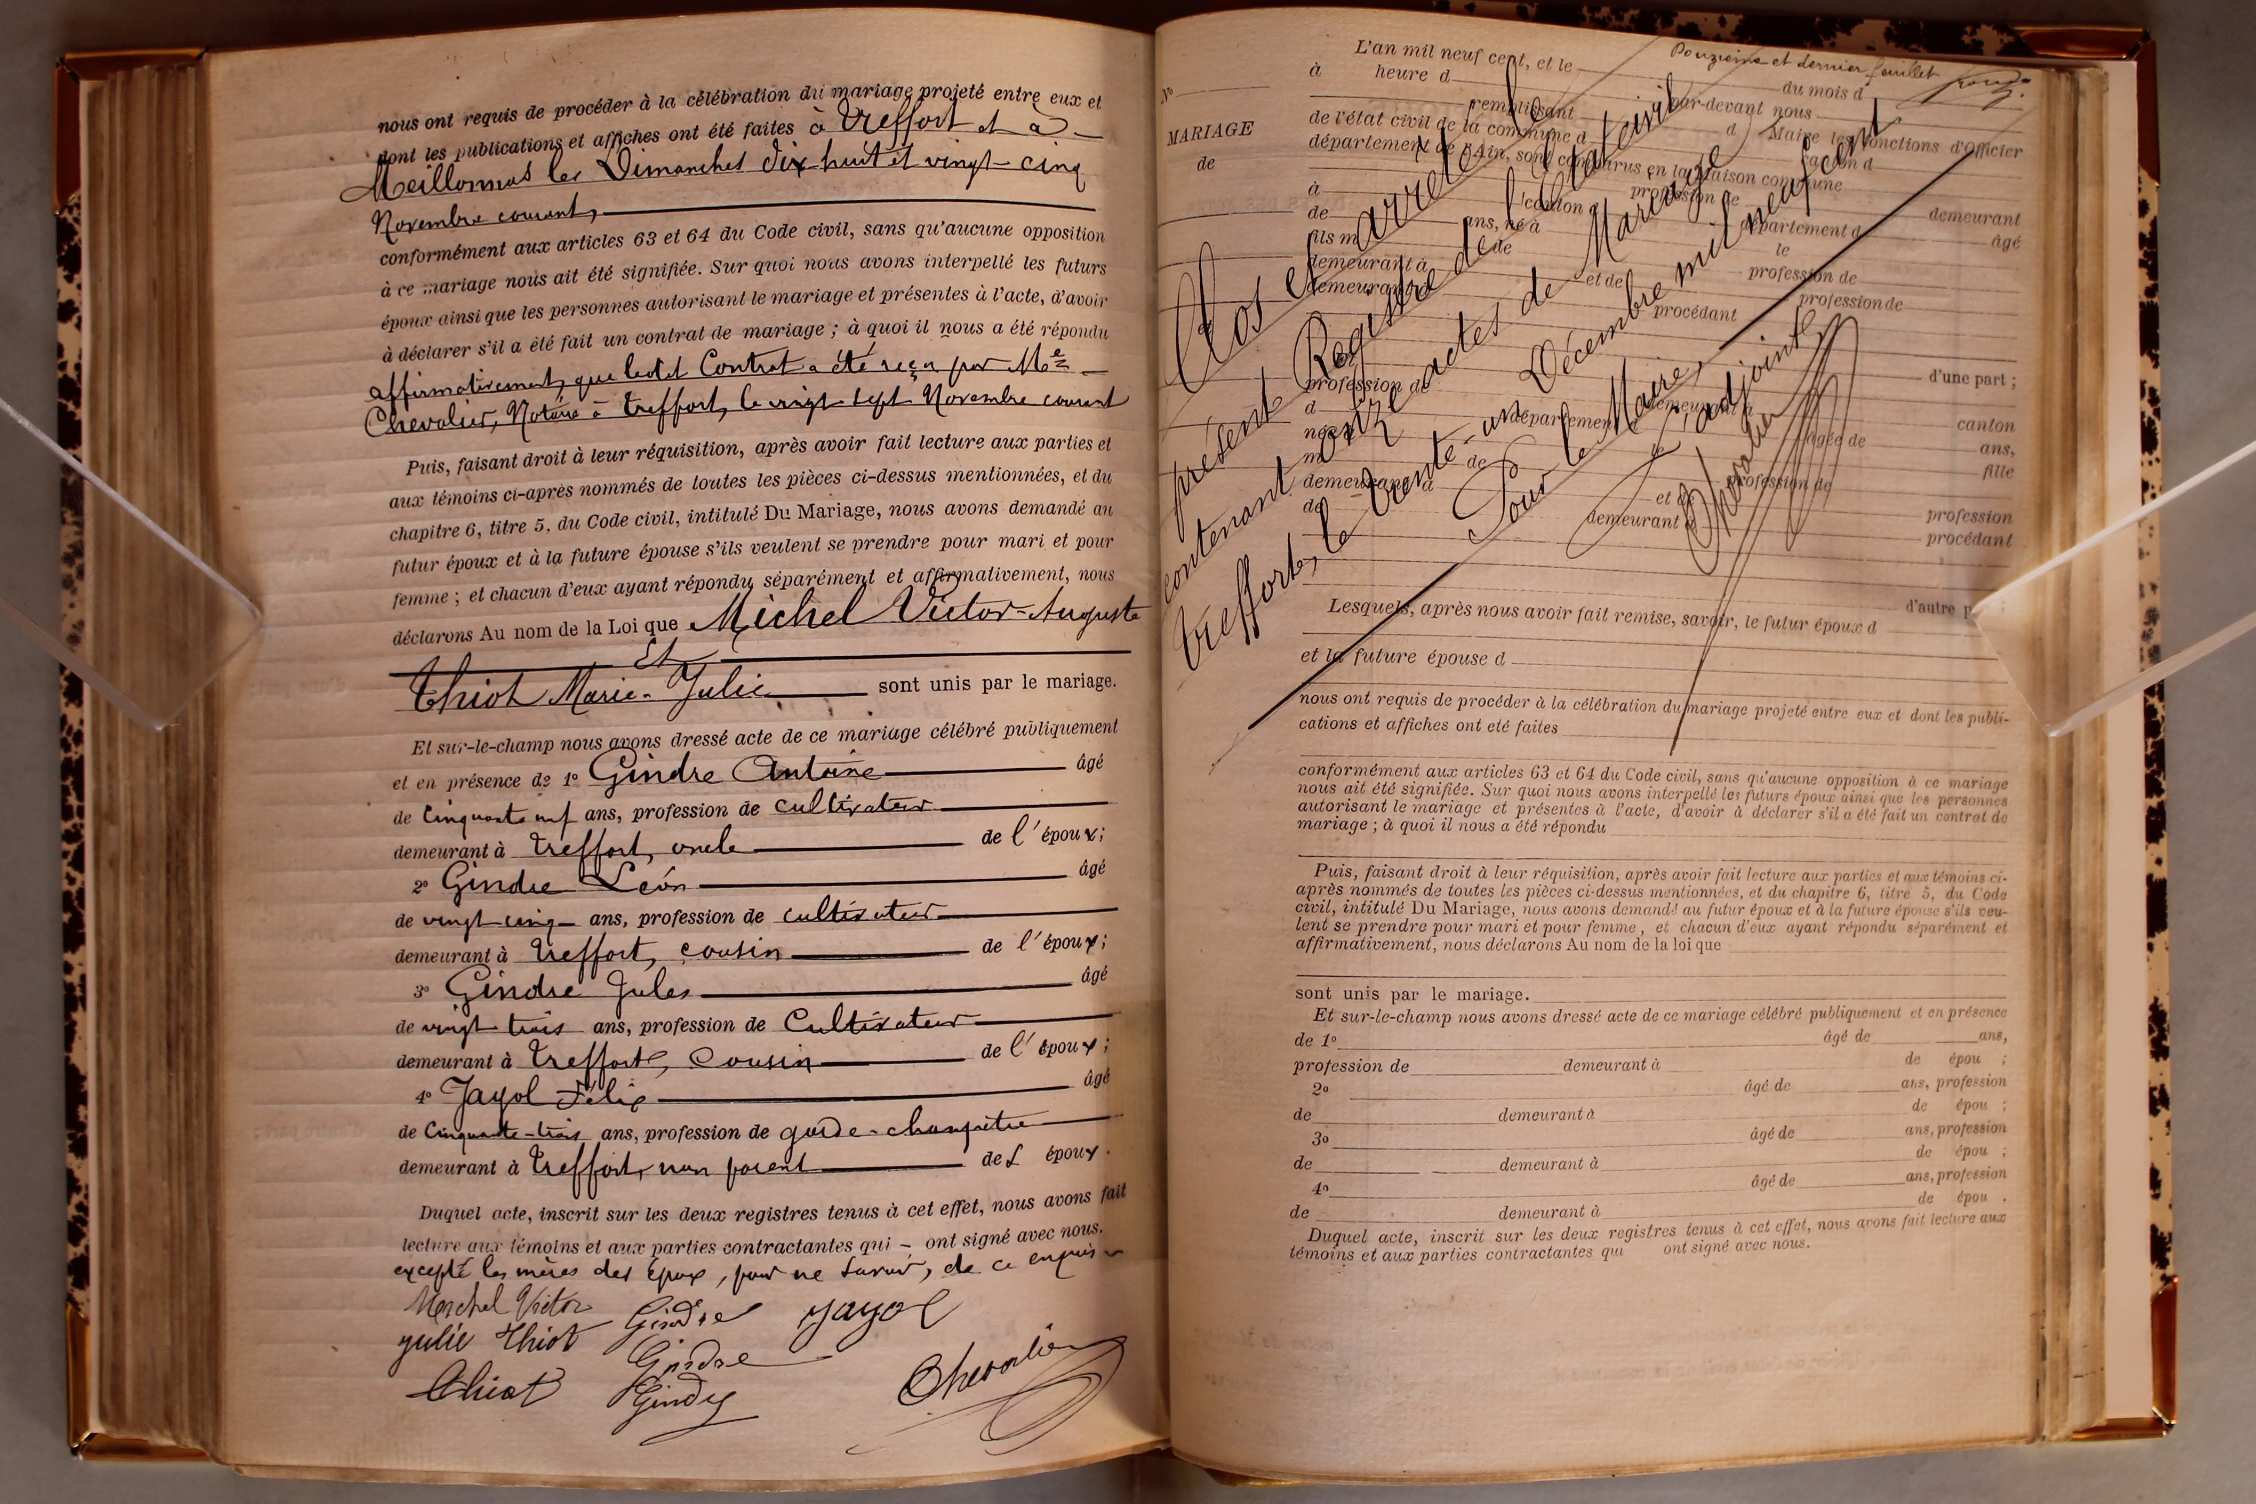 nous ont requis de procéder à la célébration du mariage projeté entre eux et
dont les publications et affiches ont été faites à Treffort et à
Meillonnas les Dimanches dix-huit et vingt-cinq
Novembre courant,
conformément aux articles 63 et 64 du Code civil, sans qu'aucune opposition
à ce mariage nous ait été signifiée. Sur quoi nous avons interpellé les futurs
époux ainsi que les personnes autorisant le mariage et présentes à l'acte, d'avoir
à déclarer s'il a été fait un contrat de mariage ; à quoi il nous a été répondu
affirmativement, que ledit Contrat a été reçu par Me
Chevalier, Notaire à Treffort, le vingt-sept Novembre courant
Puis, faisant droit à leur réquisition, après avoir fait lecture aux parties et
aux témoins ci-après nommés de toutes les pièces ci-dessus mentionnées, et du
chapitre 6, titre 5, du Code civil, intitulé Du Mariage, nous avons demandé au
futur époux et à la future épouse s'ils veulent se prendre pour mari et pour
femme ; et chacun d'eux ayant répondu séparément et affirmativement, nous
déclarons Au nom de la Loi que Michel Victor-Auguste
Et
Thiot Marie-Julie sont unis par le mariage.
Et sur-le-champ nous avons dressé acte de ce mariage célébré publiquement
et en présence de 1º Gindre Antoine âgé
de Cinquante neuf ans, profession de cultivateur
demeurant à Treffort, oncle de l'époux ;
2º Gindre Léon âgé
de vingt cinq ans, profession de cultivateur
demeurant à Treffort, cousin de l'époux ;
3º Gindre Jules âgé
de vingt trois ans, profession de Cultivateur
demeurant à Treffort, Cousin de l'époux ;
4º Jayol Félix âgé
de Cinquante-trois ans, profession de garde-champêtre
demeurant à Treffort, non parent de l époux .
Duquel acte, inscrit sur les deux registres tenus à cet effet, nous avons fait
lecture aux témoins et aux parties contractantes qui - ont signé avec nous.
excepté les mères des époux, pour ne savoir, de ce enquis
Michel Victor Gindre Jayol
Julie Thiot Gindre
Thiot Gindre Chevalier
Douzième et dernier feuillet
Nº
MARIAGE
de
L'an mil neuf cent, et le du mois d
à heure d par-devant nous
remplissant d Maire les fonctions d'Officier
de l'état civil de la commune d canton d
département de l'Ain, sont comparus en la Maison commune
profession de
à canton d demeurant
de ans, né à département d âgé
fils m de le
demeurant à profession de
demeurant à et de profession de
procédant
d'une part ;
profession de
d demeurant à canton
née à département d âgée de ans,
m de fille
demeurant à profession de
de et de profession
demeurant à procédant
Clos et arrêté le
présent Registre de l'Etat civil
contenant onze actes de Mariage
Treffort, le trente-un Décembre mil neuf cent
Pour le Maire,
L'adjoint,
Chevalier
d'autre part ;
Lesquels, après nous avoir fait remise, savoir, le futur époux d
et la future épouse d
nous ont requis de procéder à la célébration du mariage projeté entre eux et dont les publi-
cations et affiches ont eté faites
conformément aux articles 63 et 64 du Code civil, sans qu'aucune opposition à ce mariage
nous ait été signifiée. Sur quoi nous avons interpellé les futurs époux ainsi que les personnes
autorisant le mariage et présentes à l'acte, d'avoir à déclarer s'il a été fait un contrat de
mariage ; à quoi il nous a été répondu
Puis, faisant droit à leur réquisition, après avoir fait lecture aux parties et aux témoins ci-
après nommés de toutes les pièces ci-dessus mentionnées, et du chapitre 6, titre 5, du Code
civil, intitulé Du Mariage, nous avons demandé au futur époux et à la future épouse s'ils veu-
lent se prendre pour mari et pour femme, et chacun d'eux ayant répondu séparément et
affirmativement, nous déclarons Au nom de la loi que
sont unis par le mariage.
Et sur-le-champ nous avons dressé acte de ce mariage célébré publiquement et en présence
de 1º âgé de ans,
profession de demeurant à de épou ;
2º âgé de ans, profession
de demeurant à de épou ;
3º âgé de ans, profession
de demeurant à de épou ;
4º âgé de ans, profession
de demeurant à de épou .
Duquel acte, inscrit sur les deux registres tenus à cet effet, nous avons fait lecture aux
témoins et aux parties contractantes qui ont signé avec nous.